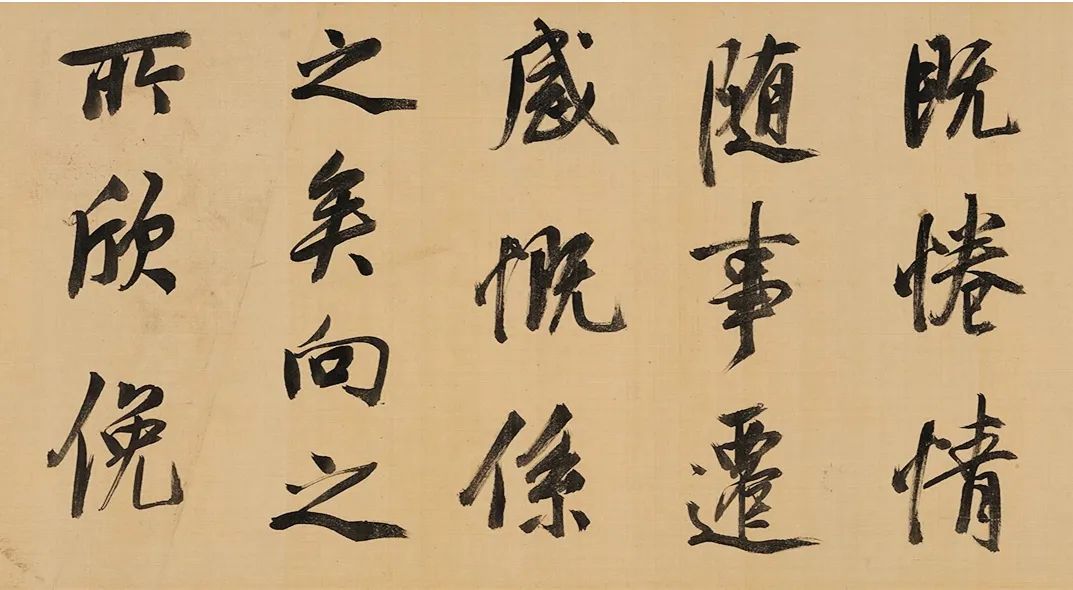 既惓情
随事遷
感慨係
之矣向之
所欣俛